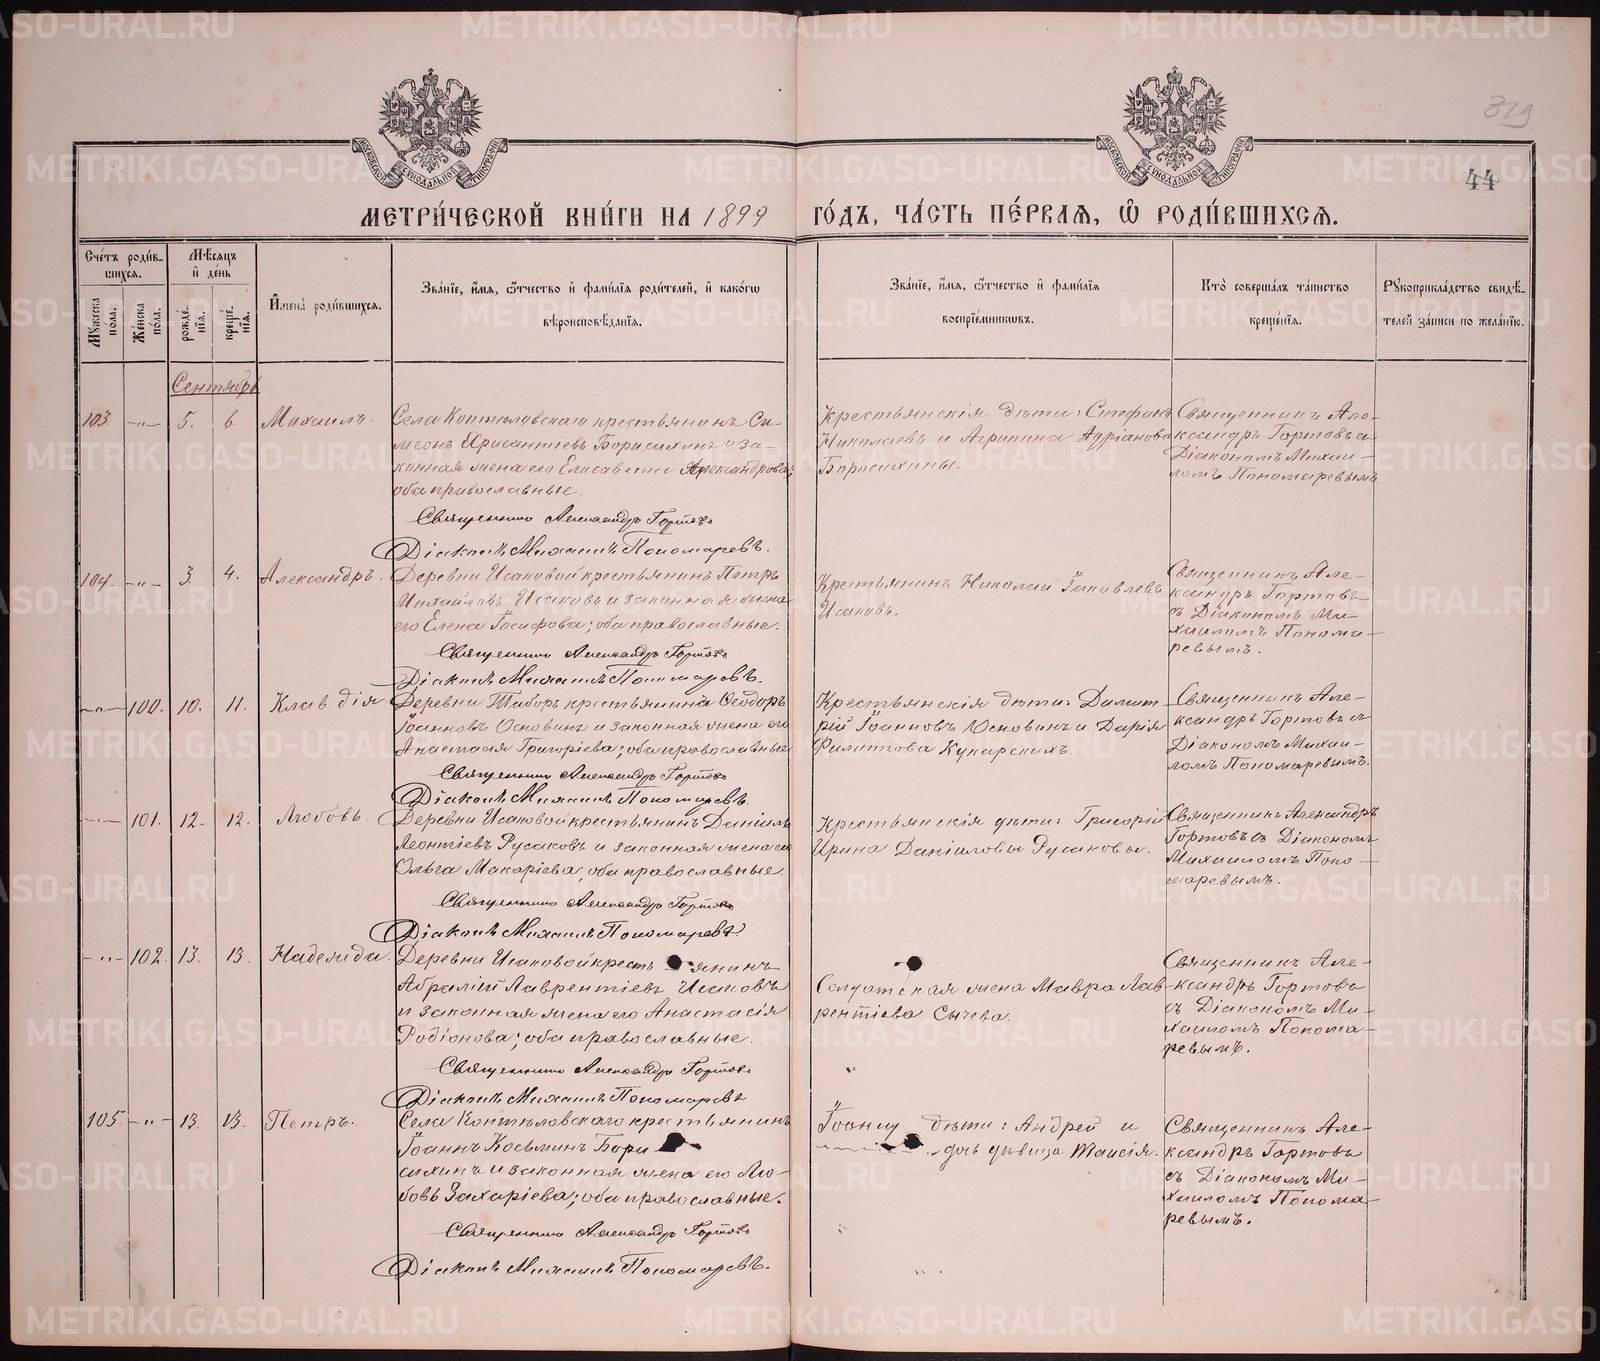 329
44
МЕТРИ́ЧЕСКОЙ КНИ́ГИ НА 1899 ГО́ДЪ, ЧА́СТЬ ПЕ́РВАЯ, Ѿ РОДИ́ВШИХСЯ.
Сче́тъ роди́вшихся.
Мѣ́сяцъ и де́нь
Му́жеска по́ла.
Же́нска по́ла.
рожде́нїя.
креще́нїя.
И҆мена̀ роди́вшихся.
Зва́нїе, и҆́мя, ѻ҆́тчество и҆ фами́лїя роди́телей, и҆ како́гѡ
вѣроисповѣ́данїя.
Зва́нїе, и҆́мя, ѻ҆́тчество и҆ фами́лїя
воспрїе́мниковъ.
Кто̀ соверша́лъ та́инство
креще́нїя.
Рꙋкоприкла́дство свидѣ́-
телей за́писи по жела́нїю.
Сентябрь
103. -"- 5. 6. Михаилъ.
Села Коптѣловскаго крестьянинъ Си-
меонъ Хрисантіевъ Борисихинъ и за-
конная жена его Елисавета Александрова;
оба православные.
Священникъ Александръ Гортовъ
Діаконъ Михаилъ Пономаревъ.
Крестьянскія дѣти: Стефанъ
Николаевъ и Агрипина Адріанова
Борисихины.
Священникъ Але-
ксандръ Гортовъ съ
Діакономъ Михаи-
ломъ Пономаревымъ
104. -"- 3. 4. Александръ.
Деревни Исаковой крестьянинъ Петръ
Михайловъ Исаковъ и законная жена
его Елена Іосифова; оба православные.
Священникъ Александръ Гортовъ
Діаконъ Михаилъ Пономаревъ.
Крестьянинъ Николай Іаковлевъ
Исаковъ.
Священникъ Але-
ксандръ Гортовъ
съ Діакономъ Ми-
хаиломъ Понома-
ревымъ.
-"- 100. 10. 11. Клавдія
Деревни Таборъ крестьянинъ Ѳеодоръ
Іоанновъ Основинъ и законная жена его
Анастасія Григоріева; оба православные
Священникъ Александръ Гортовъ
Діаконъ Михаилъ Пономаревъ.
Крестьянскія дѣти: Димит-
рій Іоанновъ Основинъ и Дарія
Филитова Кукарскихъ.
Священникъ Але-
ксандръ Гортовъ съ
Діакономъ Михаи-
ломъ Пономаревымъ.
-"- 101. 12. 12. Любовь.
Деревни Исаковой крестьянинъ Даніилъ
Леонтіевъ Русаковъ и законная жена его
Ольга Макаріева, оба православные
Священникъ Александръ Гортовъ
Діаконъ Михаилъ Пономаревъ
Крестьянскія дѣти: Григорій
Ирина Даніиловы Русаковы.
Священникъ Александръ
Гортовъ съ Діакономъ
Михаиломъ Поно-
маревымъ.
-"- 102. 13. 13. Надежда.
Деревни Исаковой крестьянинъ
Абрамій Лаврентіевъ Исаковъ
и законная жена его Анастасія
Родіонова; оба православные.
Священникъ Александръ Гортовъ
Діаконъ Михаилъ Пономаревъ
Солдатская жена Мавра Лав-
рентіева Сычева.
Священникъ Але-
ксандръ Гортовъ
съ Діакономъ Ми-
хаиломъ Понома-
ревымъ.
105. -"- 13. 13. Петръ.
Села Коптѣловскаго крестьянинъ
Іоаннъ Косьминъ Бори
сихинъ и законная жена его Лю-
бовь Захаріева; оба православные.
Священникъ Александръ Гортовъ
Діаконъ Михаилъ Пономаревъ.
дѣти: Андрей и
дочь дѣвица Таисія.
Священникъ Але-
ксандръ Гортовъ
съ Діакономъ Ми-
хаиломъ Понома-
ревымъ.
METRIKI.GASO-URAL.RU